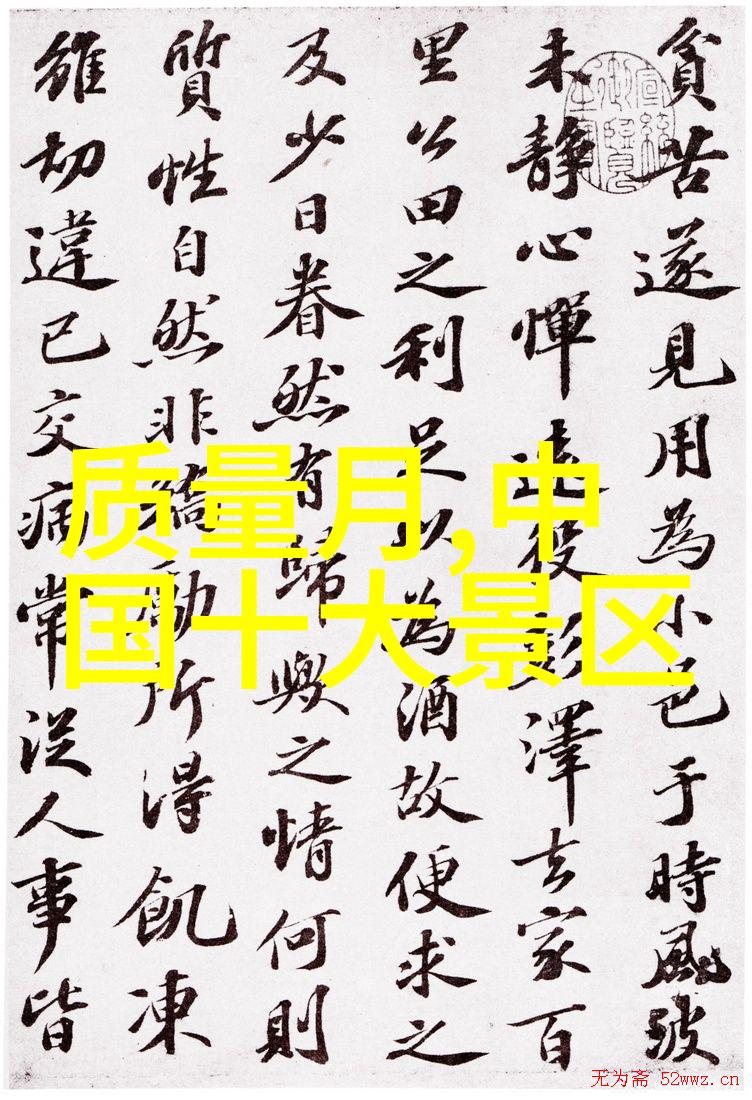 貧苦遂見用為小邑于時風波
未靜心憚遠役彭澤去家百
里公田之利足以為酒故便求之
及少日眷然有歸歟之情何則
質性自然非矯勵所得飢凍
雖切違己交病常從人事皆
质量月,中
国十大景区
无为斋 52wwz.cn